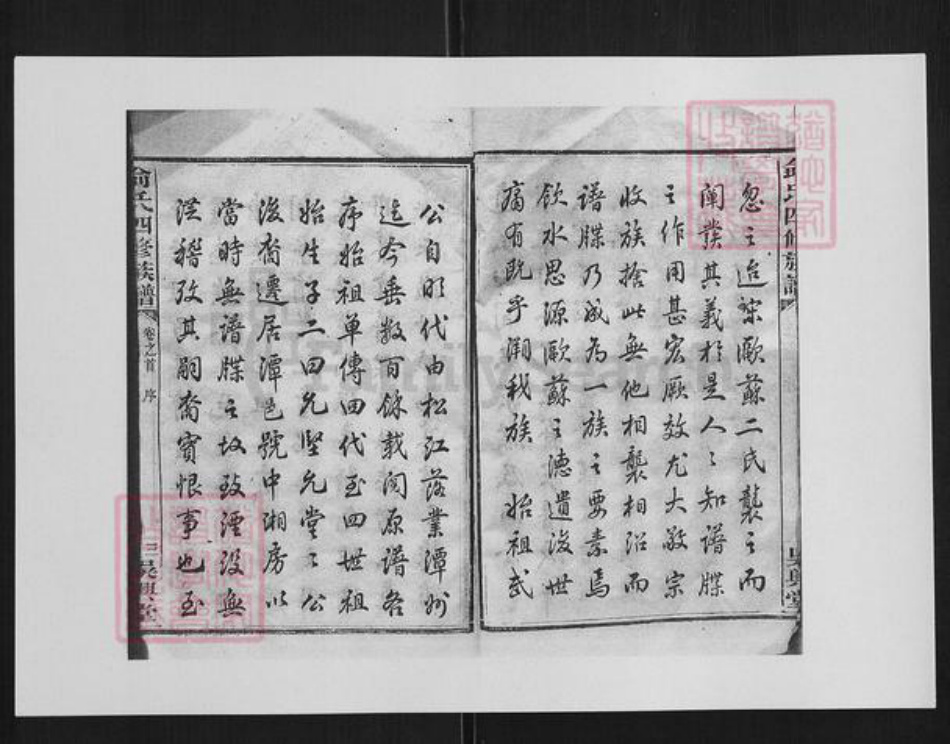 俞氏四修族譜
吳興堂
忽之迨宋歐蘇二氏襲之而
闡發其義於是人人知譜牒
之作用甚宏厥效尤大敬宗
收族捨此無他相襲相沿而
譜牒乃成為一族之要素焉
飲水思源歐蘇之德遺後世
有既乎溯我族 始祖武
公自明代由松江落業潭州
迄今垂数百餘載閱原譜各
序始祖單傳四代至四世祖
始生子二曰允堅允堂堂公
後裔遷居潭邑號中湘房以
當時無譜牒之故致湮没無
從稽攷其嗣裔實恨事也至
俞氏四修族譜
卷之首 序
吳興堂